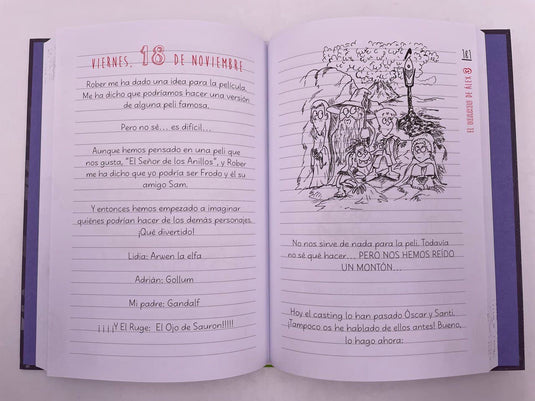 VIERNES, 18 DE NOVIEMBRE
Rober me ha dado una idea para la película.
Me ha dicho que podríamos hacer una versión
de alguna peli famosa.
Pero no sé... es difícil...
Aunque hemos pensado en una peli que
nos gusta, "El Señor de los Anillos", y Rober
me ha dicho que yo podría ser Frodo y él su
amigo Sam.
Y entonces hemos empezado a imaginar
quiénes podrían hacer de los demás personajes.
¡Qué divertido!
Lidia: Arwen la elfa
Adrián: Gollum
Mi padre: Gandalf
¡¡¡¡¡Y El Ruge: El Ojo de Sauron!!!!!
No nos sirve de nada para la peli. Todavía
no sé qué hacer... PERO NOS HEMOS REÍDO
UN MONTÓN...
Hoy el casting lo han pasado Óscar y Santi.
¡Tampoco os he hablado de ellos antes! Bueno,
lo hago ahora: